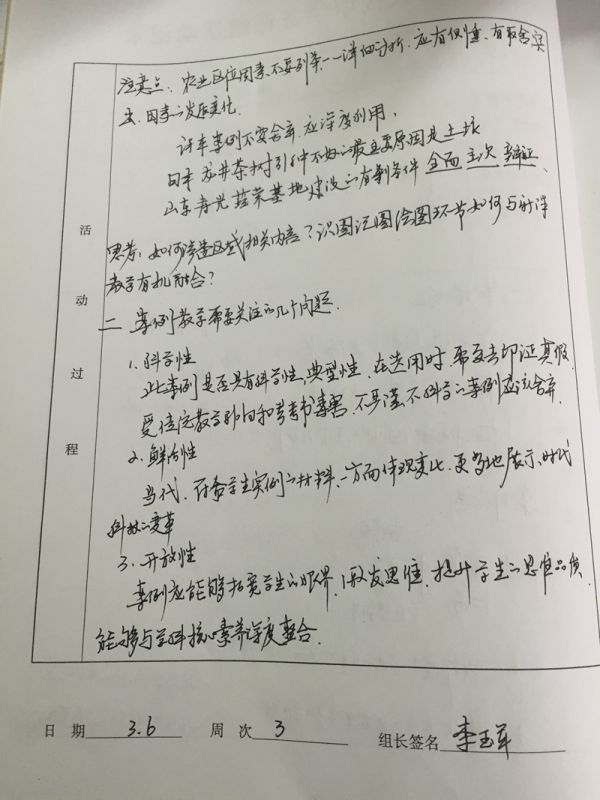 注意点：农业区位因素不要列举一一详细分析，应有侧重、有取舍实
去、因素的发展变化。
许车案例不要舍弃，应深度利用，
日本龙井茶树引种不好的最主要原因是土壤
山东寿光蔬菜基地建设的有利条件 全面 主次 辩证、
思考：如何渗透区域相关内容？识图记图绘图环节如何与
教学有机融合？
二 案例教学需要关注的几个问题．
1.科学性
此案例是否具有科学性，典型性，在选用时，需要去印证真假
受传统教学和考卷毒害，不严谨，不科学的案例应该舍弃．
2.鲜活性
当代、符合学生实例的材料，一方面体现变化，更多地展示，时代
科技的变革
3.开放性
案例应能够拓宽学生的眼界，激发思维，提升学生的思维品质，
能够与学科核心素养深度整合．
活动过程
日期 3.6 周次 3 组长签名 李玉军